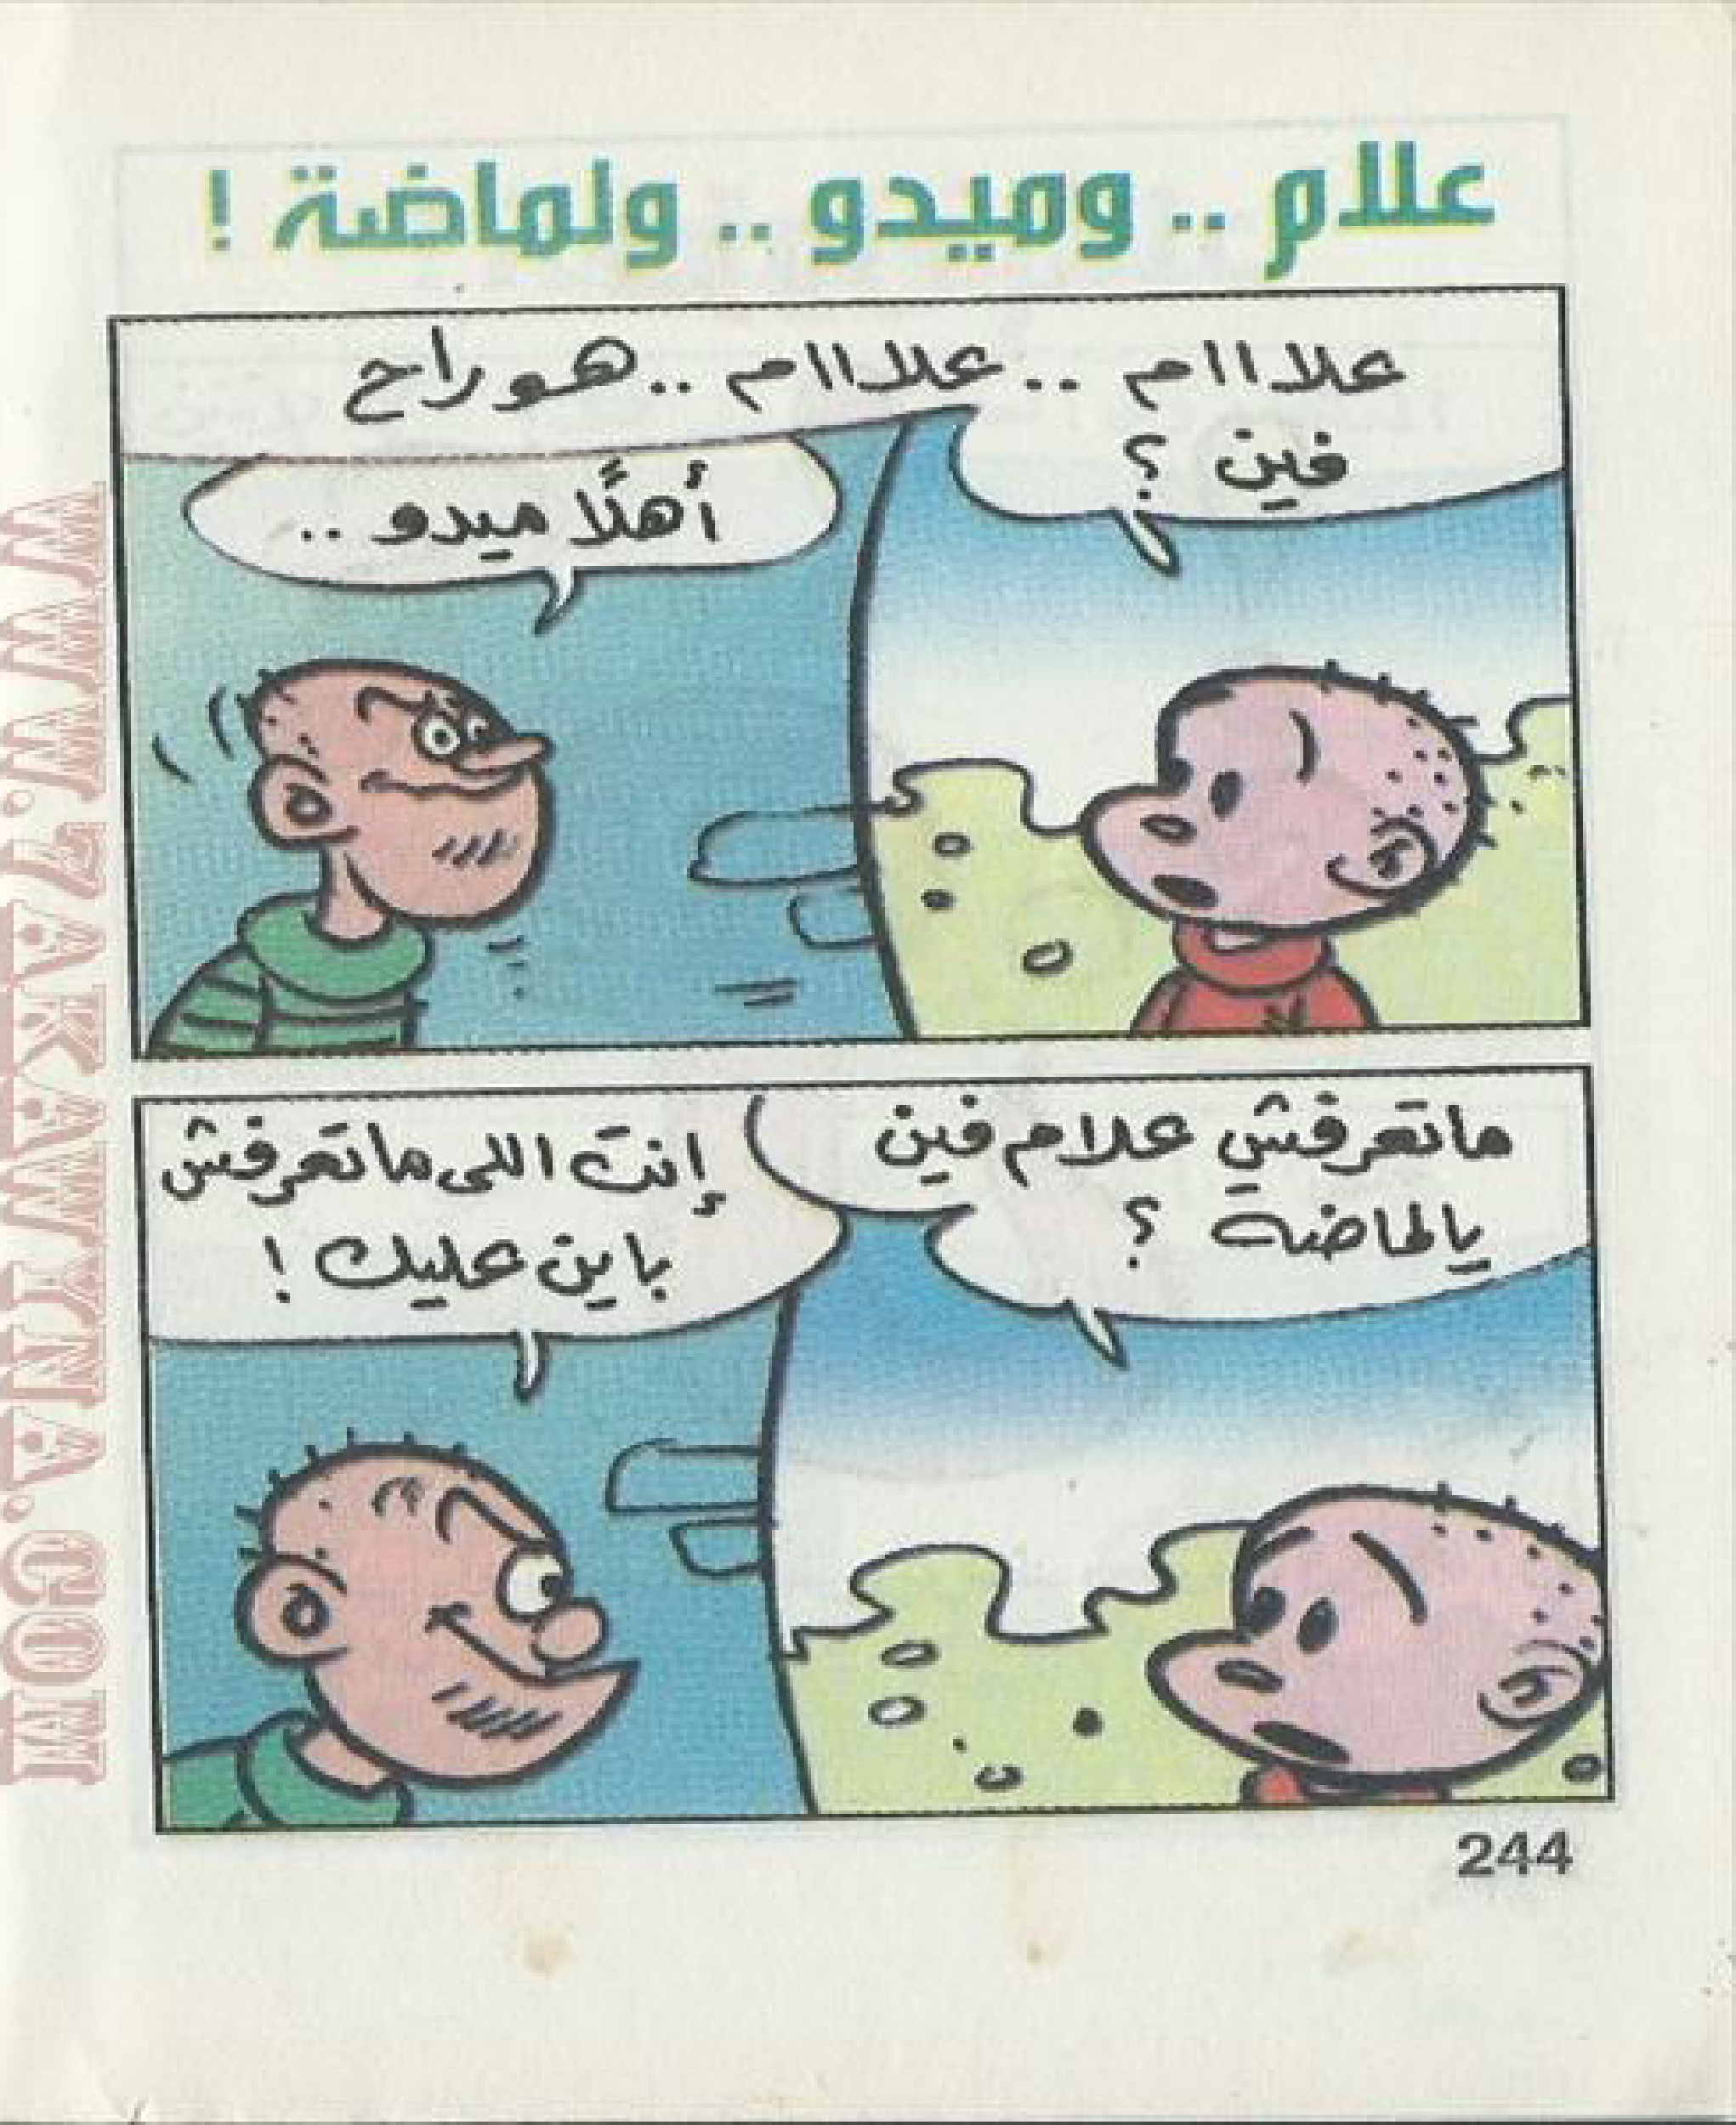 علام .. وميدو .. ولماضة !
علااام .. علاااام .. هو راح
فين ؟
أهلًا ميدو ..
ماتعرفش علام فين
يالماضة ؟
إنت اللى ماتعرفش
باين عليك !
244
WWW.ZAKAWYNA.COM